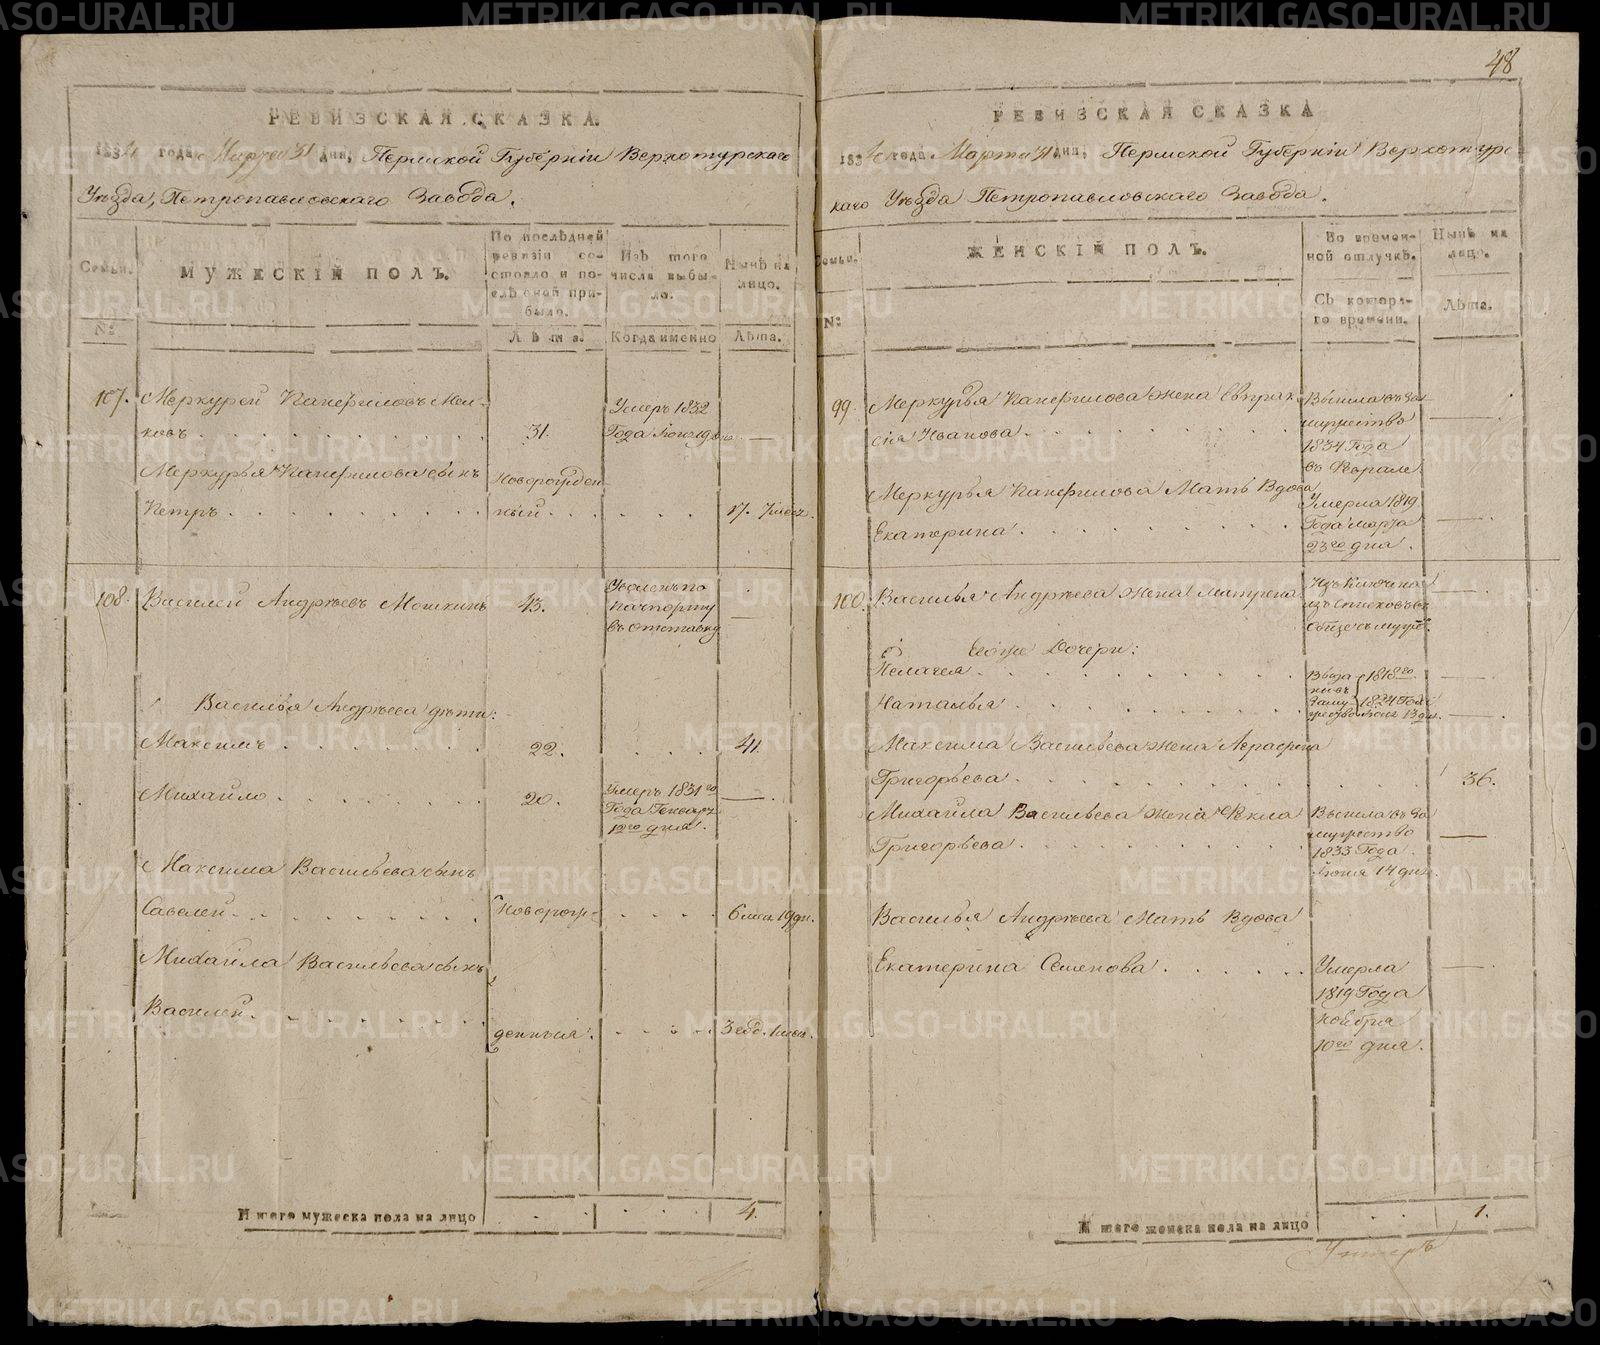 48
РЕВИЗСКАЯ СКАЗКА.
1834 года Марта 31 дня, Пермской Губерніи Верхотурскаго
Уѣзда, Петропавловскаго Завода.
Семьи.
МУЖЕСКІЙ ПОЛЪ.
По послѣдней
ревизіи со-
стояло и по-
слѣ оной при-
было.
Изъ того
числа выбы-
ло.
Нынѣ на
лицо.
№:
Лѣта.
Когда именно
Лѣта.
107. Меркурей Панфиловъ
ковъ 31. Умеръ 1832 Года —
Меркурья Панфилова сынъ Новорожден
Петръ ный 17.
108. Василей Андрѣевъ Мошкинъ 43. Уволенъ по
пачпорту
въ отставку —
Василья Андрѣева дѣти:
Максимъ 22. 41.
Михайло 20. Умеръ 1831го —
Года Генваря
дня.
Максима Васильева сынъ
Савелей Новорож-
Михайла Васильева сынъ
Василей
денныя. 3
И того мужеска пола на лицо 4.
РЕВИЗСКАЯ СКАЗКА
1834 года Марта 31 дня, Пермской Губерніи Верхотурс
каго Уѣзда Петропавловскаго Завода.
Семьи.
ЖЕНСКІЙ ПОЛЪ.
Во времен-
ной отлучкѣ.
Нынѣ на
лицо.
№:
Съ котора-
го времени.
Лѣта.
99. Меркурья Панфилова жена Евпрак- Вышла въ за-
сія Иванова мужество —
1834 Года
въ Феврале
Меркурья Панфилова Мать Вдова
Екатерина Умерла 1819
Года Марта —
23го дня.
100. Василья Андрѣева жена Матрена
изъ списковъ —
Его же Дочери:
Пелагея 1818го —
Наталья 1824 Года —
Максима Васильева жена Аграфена
Григорьева 36.
Михайла Васильева жена Фекла Вышла въ За
Григорьева мужество —
1833 Года
Іюня 14 дня.
Василья Андрѣева Мать Вдова
Екатерина Семенова Умерла —
1819 Года
Ноября
10го дня.
И того женска пола на лицо 1.